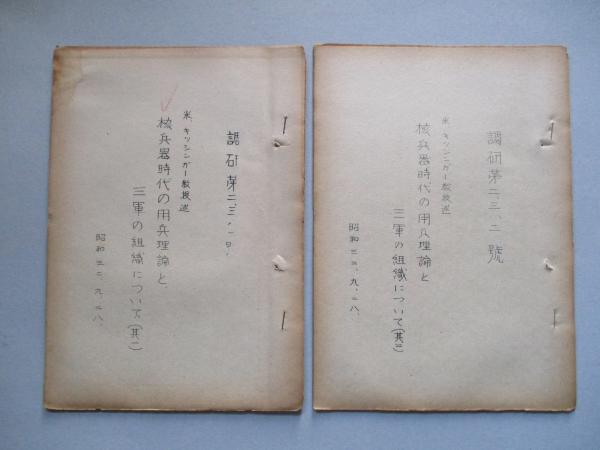 調研第二、三、一号、
米、キッシンガー教授述
核兵器時代の用兵理論と
三軍の組織について(其一)
昭和三二、九、二八、
調研第二、三、二號
米、キッシンガー教授述
核兵器時代の用兵理論と
三軍の組織について(其二)
昭和三二、九、二八、